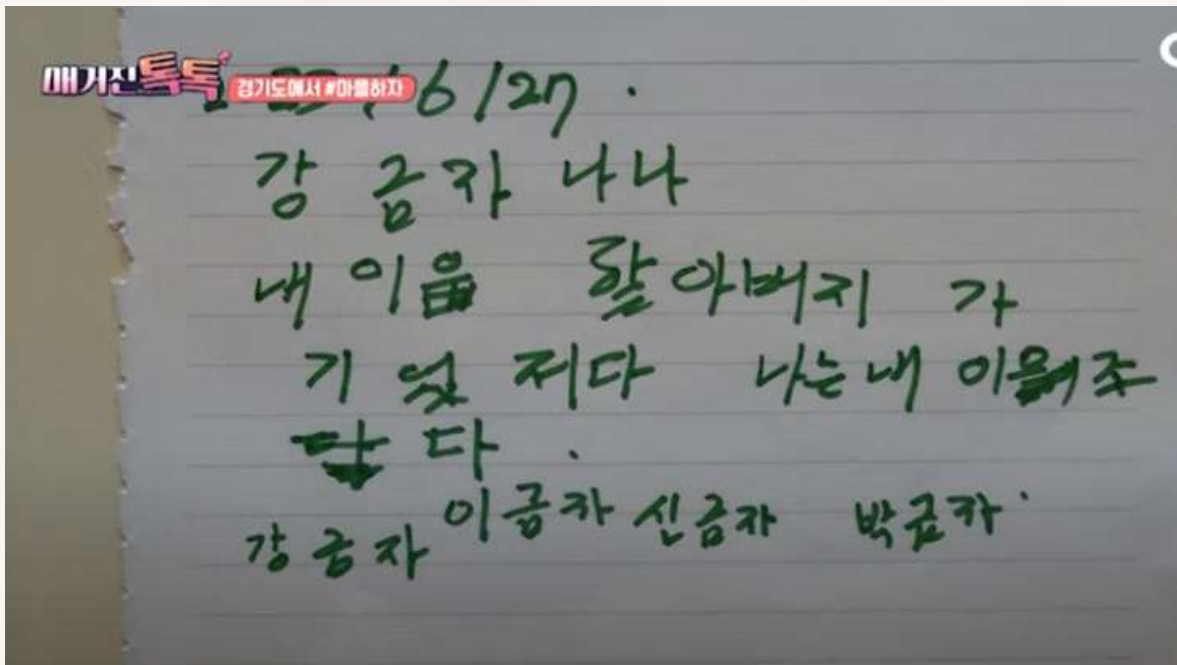 매거진톡톡
경기도에서 #마을하자
/6/27.
강 금자 나나
내 이음 할아버지 가
기 엇 저다 나는 내 조
다.
강금자 이금자 신금자 박금자.